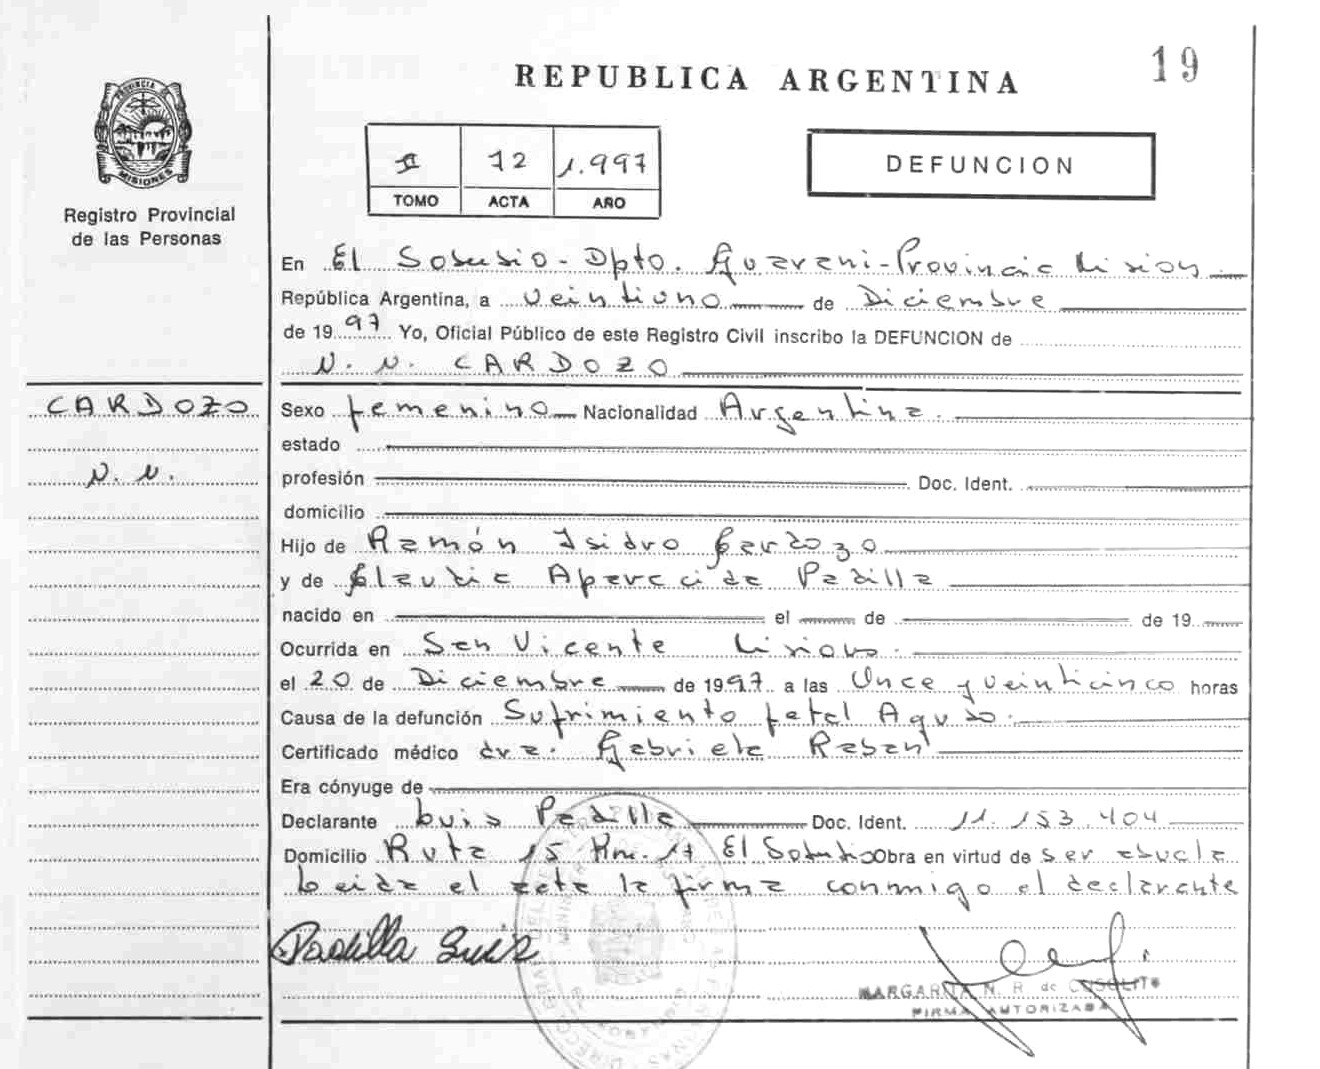 19
REPUBLICA ARGENTINA
PROVINCIA DE
MISIONES
Registro Provincial
de las Personas
II 12 1.997
TOMO ACTA AÑO
DEFUNCION
En El Soberbio - Dpto. Guarani - Provincia Misiones
República Argentina, a veintiuno de Diciembre
de 19 97 Yo, Oficial Público de este Registro Civil inscribo la DEFUNCION de
N. N. CARDOZO
CARDOZO
N. N.
Sexo femenino Nacionalidad Argentina.
estado
profesión Doc. Ident.
domicilio
Hijo de Ramón Isidro Cardozo
y de Claudia Aparecida Padilla
nacido en el de de 19
Ocurrida en San Vicente Misiones.
el 20 de Diciembre de 1997 a las Once y veinticinco horas
Causa de la defunción Sufrimiento fetal Agudo.
Certificado médico dra. Gabriela
Era cónyuge de
Declarante Luis Padilla Doc. Ident. 11.153.404
Domicilio Ruta 15 Km. 17 El Soberbio Obra en virtud de ser abuela
Leida el acta la firma conmigo el declarante
Padilla Luis
MARGARITA N. R. de
FIRMA AUTORIZADA